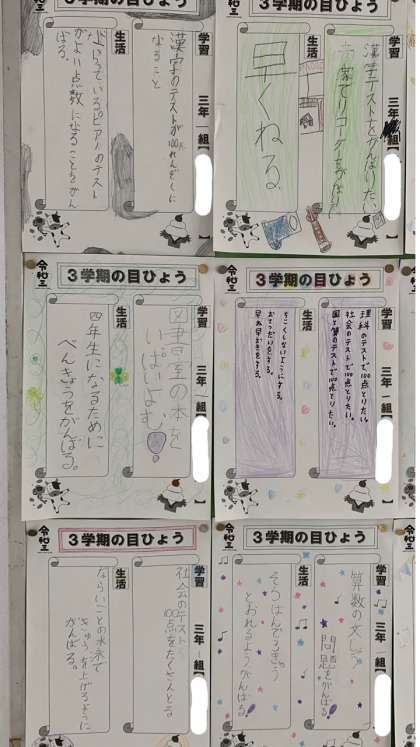 令和三
３学期の目ひょう
学習
三年一組
漢字のテストが100れんぞくに
なること
生活
ならっているピアノのテスト
がよい点数になることをがん
ばる。
令和三
３学期の目ひょう
学習
三年一組
漢字テストをがんばりたい
生活
早くねる。
令和三
３学期の目ひょう
学習
三年一組
図書室の本を
いっぱいよむ
生活
四年生になるために
べんきょうをがんばる。
令和三
３学期の目ひょう
学習
三年一組
理科のテストで100点とりたい。
社会のテストで100点とりたい。
国と算のテストで100点とりたい。
生活
ちこくしないようにする。
おてつだいをする。
早ね早おきをする。
令和三
３学期の目ひょう
学習
三年一組
社会のテスト
100点をたくさんとる
生活
ならいごとの水泳で
きゅうを上げるように
がんばる。
令和三
３学期の目ひょう
学習
三年一組
算数の文しょう
問題をがんばる
生活
そろばんで
とおれるようがんばる